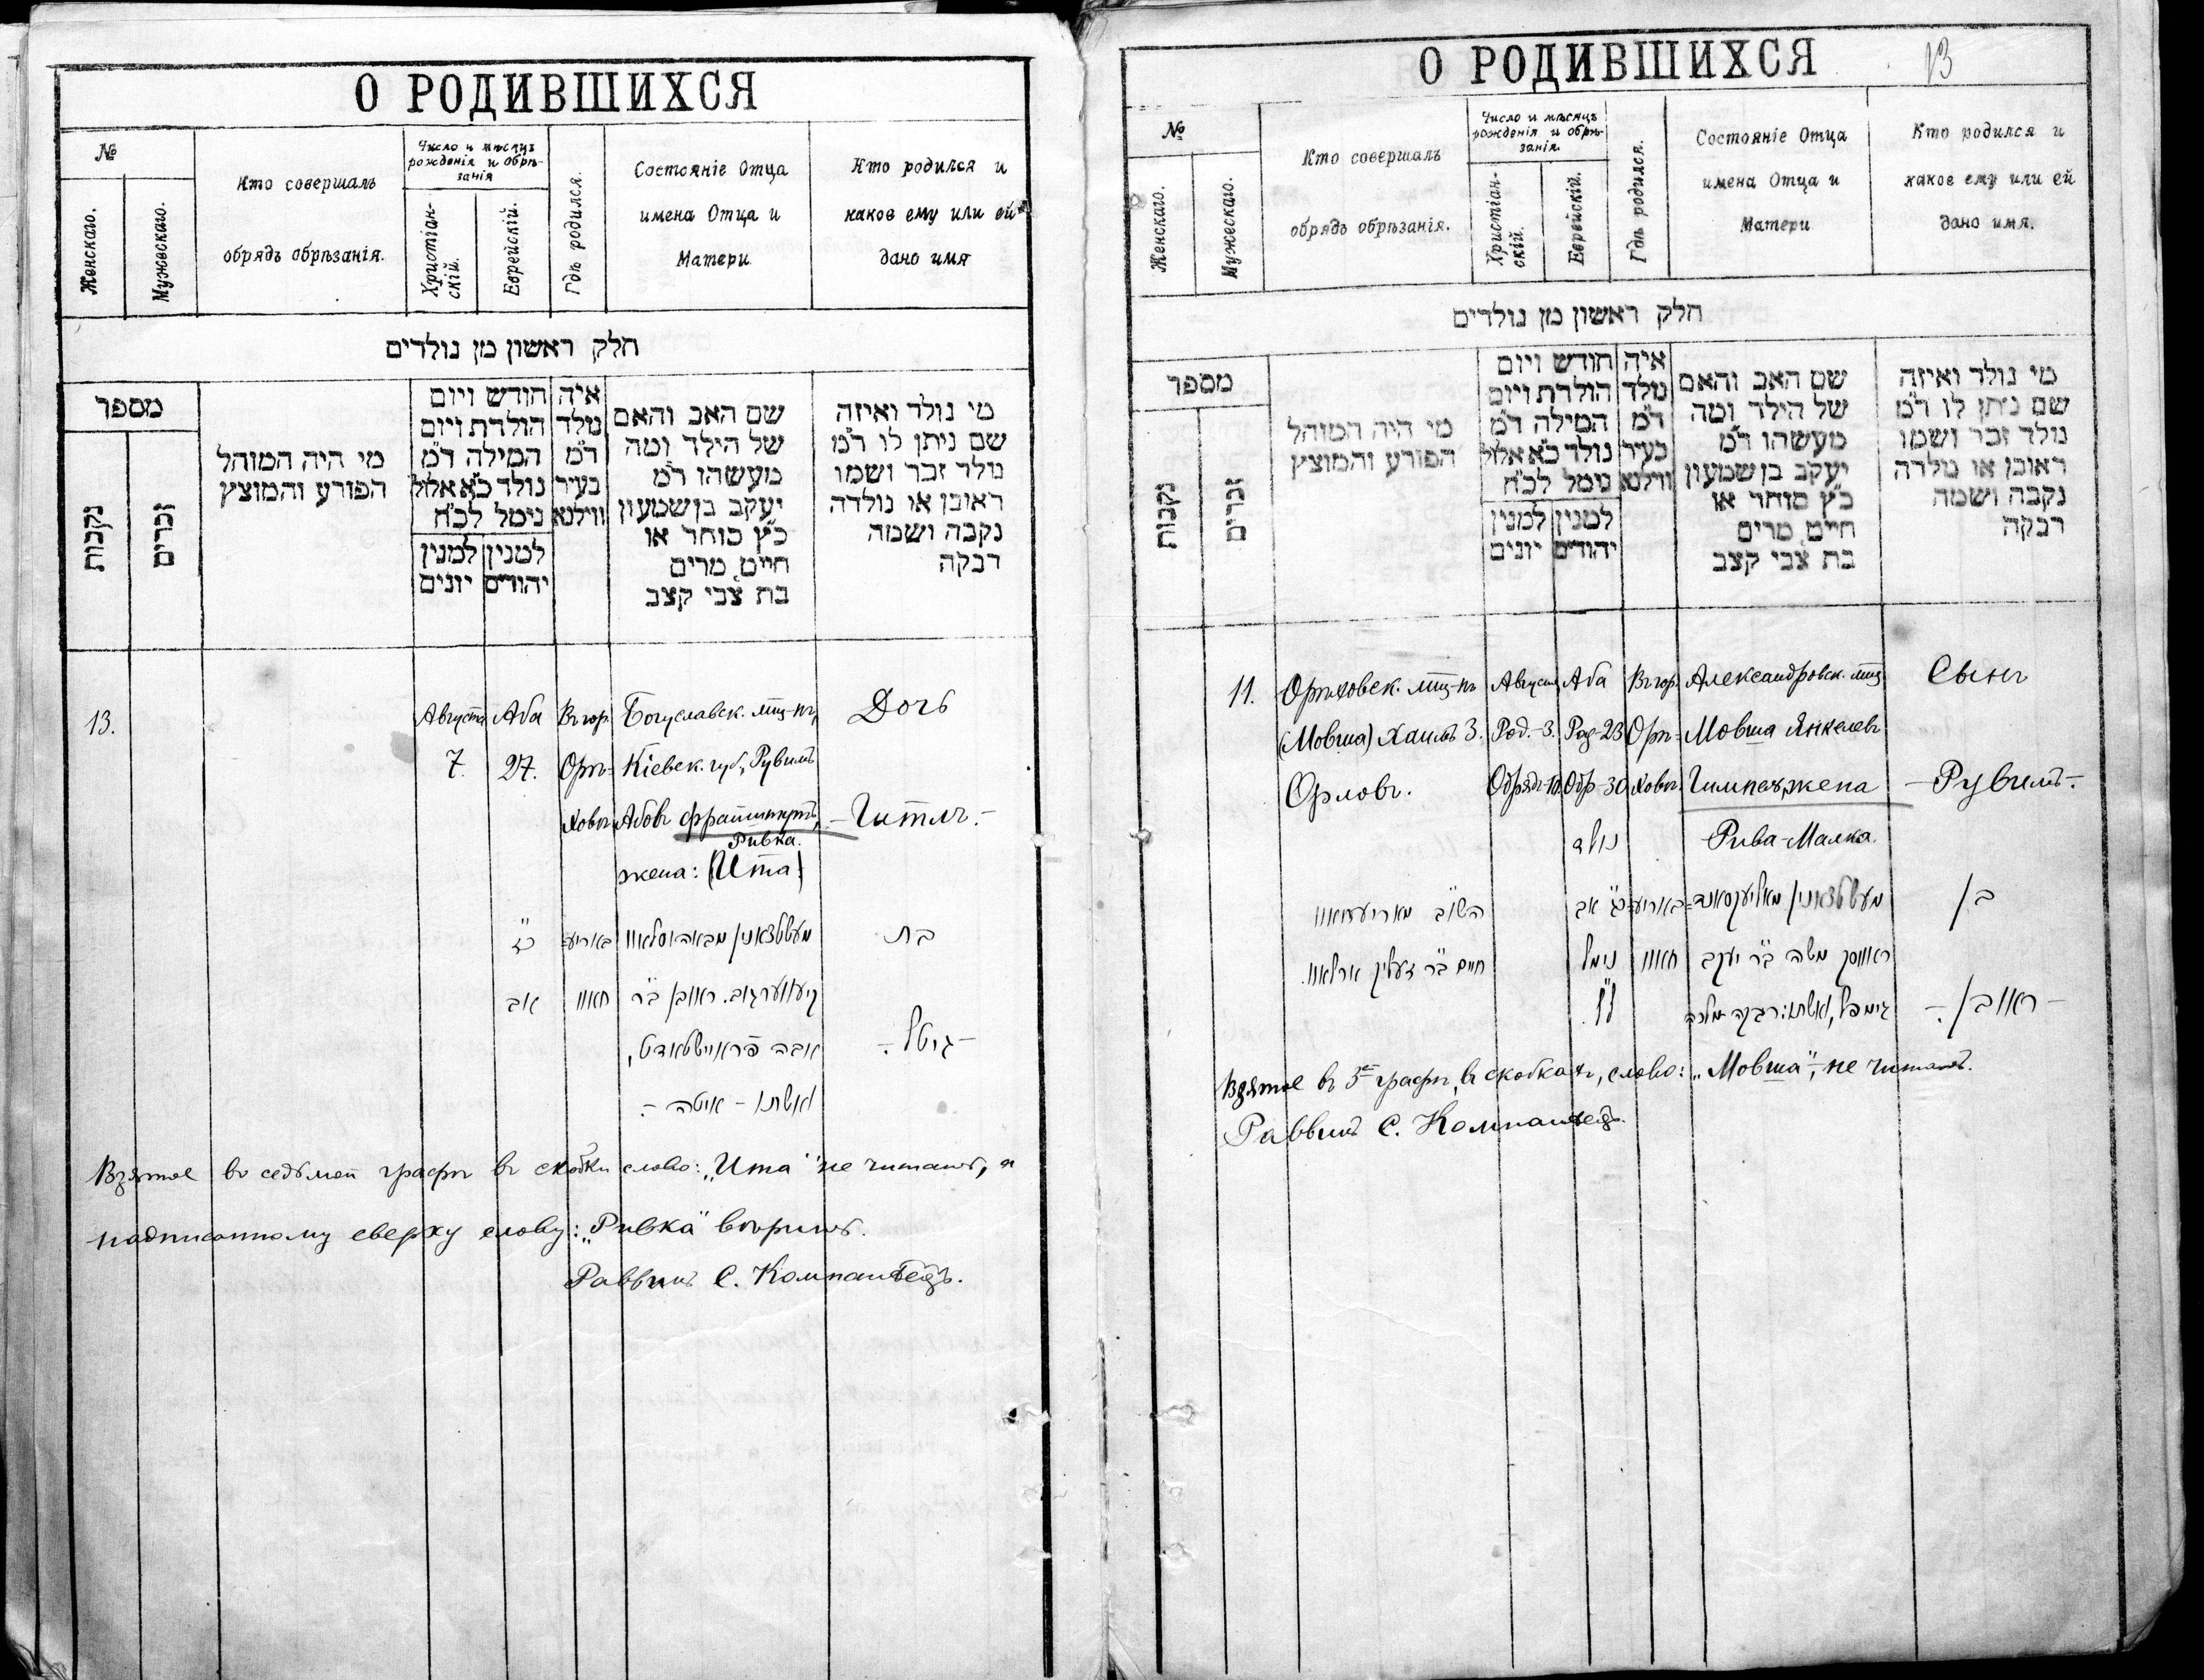 О РОДИВШИХСЯ
№
Женскаго.
Мужескаго.
Кто совершалъ
обрядъ обрѣзанія.
Число и мѣсяцъ
рожденія и обрѣ-
занія
Христіан-
скій.
Еврейскій.
Гдѣ родился.
Состояніе Отца
имена Отца и
Матери
Кто родился и
какое ему или ей
дано имя
חלק ראשון מן נולדים
מספר
נקבות
זכרים
מי היה המוהל
הפורע והמוצץ
חודש ויום
הולדת ויום
המילה ד״מ
נולד כ״א אלול
נימל לכ״ח
למנין למנין
יהודים יונים
איה
נולד
ד״מ
בעיר
ווילנא
שם האב והאם
של הילד ומה
מעשהו ד״מ
יעקב בן שמעון
כ״ץ סוחר או
חייט מרים
בת צבי קצב
מי נולד ואיזה
שם ניתן לו ד״מ
נולד זכר ושמו
ראובן או נולדה
נקבה ושמה
רבקה
13.
Августа
7.
Аба
27.
Въ гор.
Орѣ-
ховѣ
Богуславск. мѣщ-нъ,
Кіевск. губ., Рувимъ
Абовъ
Ривка.
жена: (Ита)
Дочь
— Гитля. —
כ״ז
אב
בת
— גיטל —
ואשתו — איטה —
Взятое во седьмой графѣ въ скобки слово: „Ита“ не читать, и
надписанному сверху слову: „Ривка“ вѣрить.
Раввинъ С. Компанѣецъ.
О РОДИВШИХСЯ
13
№
Женскаго.
Мужескаго.
Кто совершалъ
обрядъ обрѣзанія.
Число и мѣсяцъ
рожденія и обрѣ-
занія.
Христіан-
скій.
Еврейскій.
Гдѣ родился.
Состояніе Отца
имена Отца и
Матери
Кто родился и
какое ему или ей
дано имя.
חלק ראשון מן נולדים
מספר
נקבות
זכרים
מי היה המוהל
הפורע והמוצץ
חודש ויום
הולדת ויום
המילה ד״מ
נולד כ״א אלול
נימל לכ״ח
למנין למנין
יהודים יונים
איה
נולד
ד״מ
בעיר
ווילנא
שם האב והאם
של הילד ומה
מעשהו ד״מ
יעקב בן שמעון
כ״ץ סוחר או
חייט מרים
בת צבי קצב
מי נולד ואיזה
שם ניתן לו ד״מ
נולד זכר ושמו
ראובן או נולדה
נקבה ושמה
רבקה
11.
Орѣховск. мѣщ-нъ
(Мовша) Хаимъ З.
Орловъ.
Августа
Род.-3.
Обрядъ-10.
Аба
Род-23
Обр-30
Въ гор.
Орѣ-
ховѣ.
Александровск. мѣщ.
Мовша Янкелевъ
Гимпель, жена
Рива-Малка.
Сынъ
— Рувимъ. —
נולד
כ״ג אב
נימל
ל׳
משה ב״ר יעקב
גימפל, ואשתו: רבקה מלכה
בן
— ראובן —
Взятое въ 3-й графѣ, въ скобкахъ, слово: „Мовша“, не читать.
Раввинъ С. Компанѣецъ.